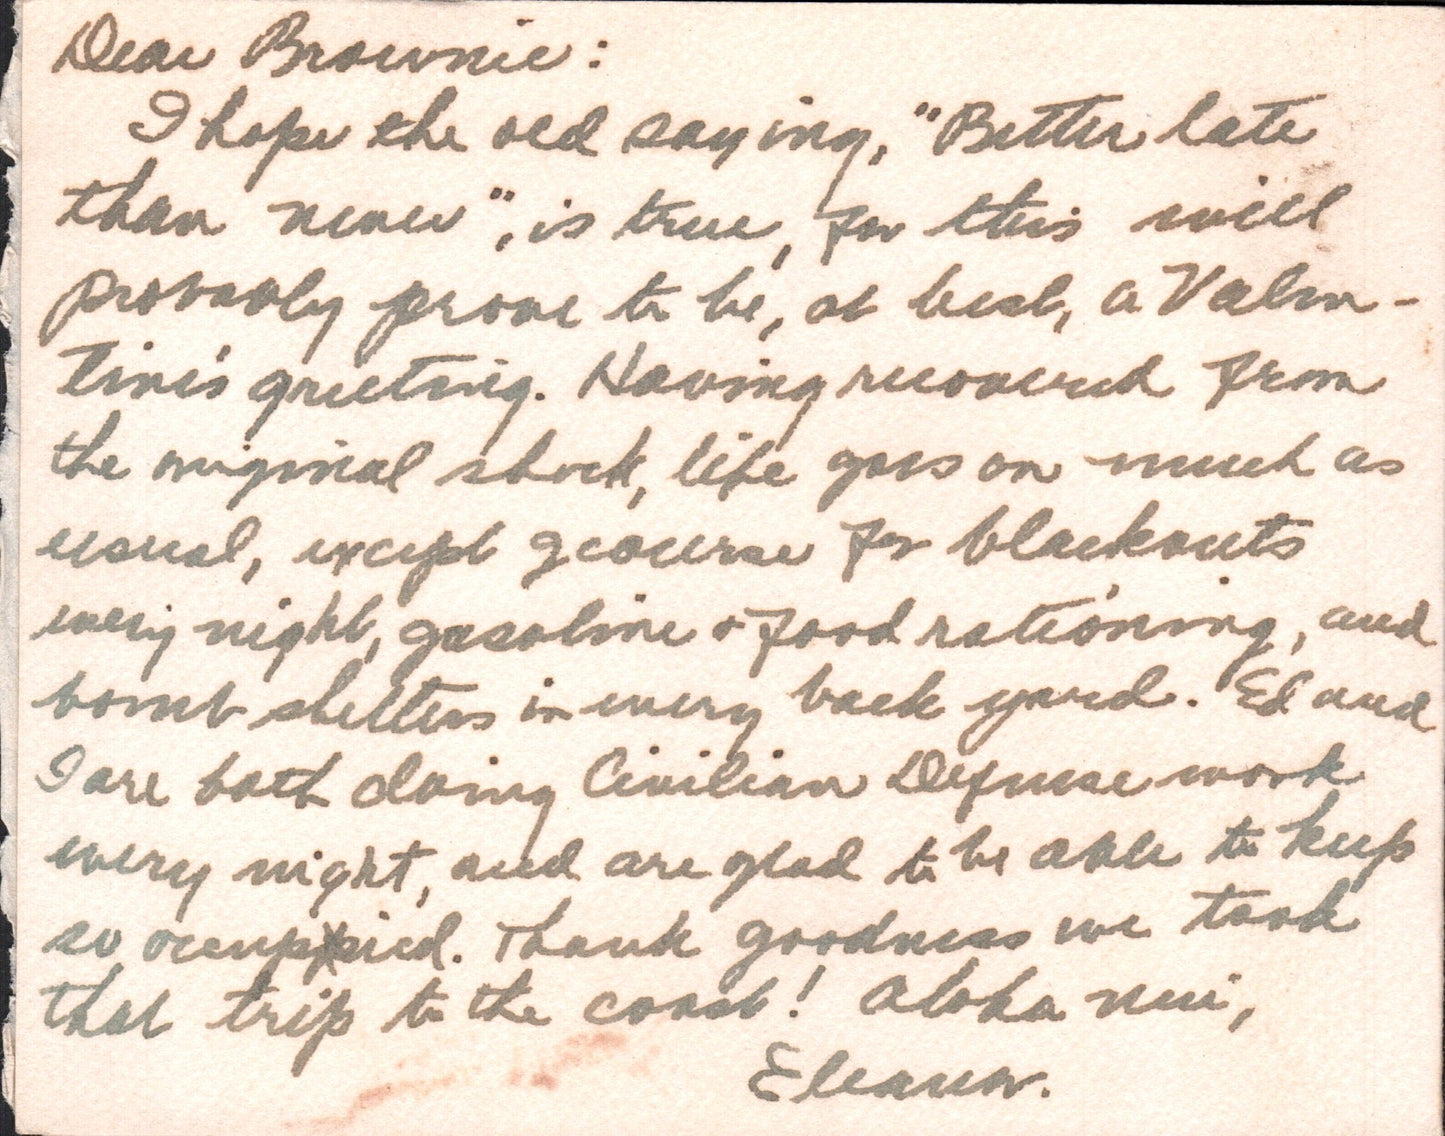 Dear Brownie:
I hope the old saying, "Better late
than never", is true, for this will
probably prove to be, at best, a Valen-
tine's greeting. Having recovered from
the original shock, life goes on much as
usual, except of course for blackouts
every night, gasoline & food rationing, and
bomb shelters in every back yard. Ed and
I are both doing Civilian Defense work
every night, and are glad to be able to keep
so occupied. Thank goodness we took
that trip to the coast! Aloha nui,
Eleanor.